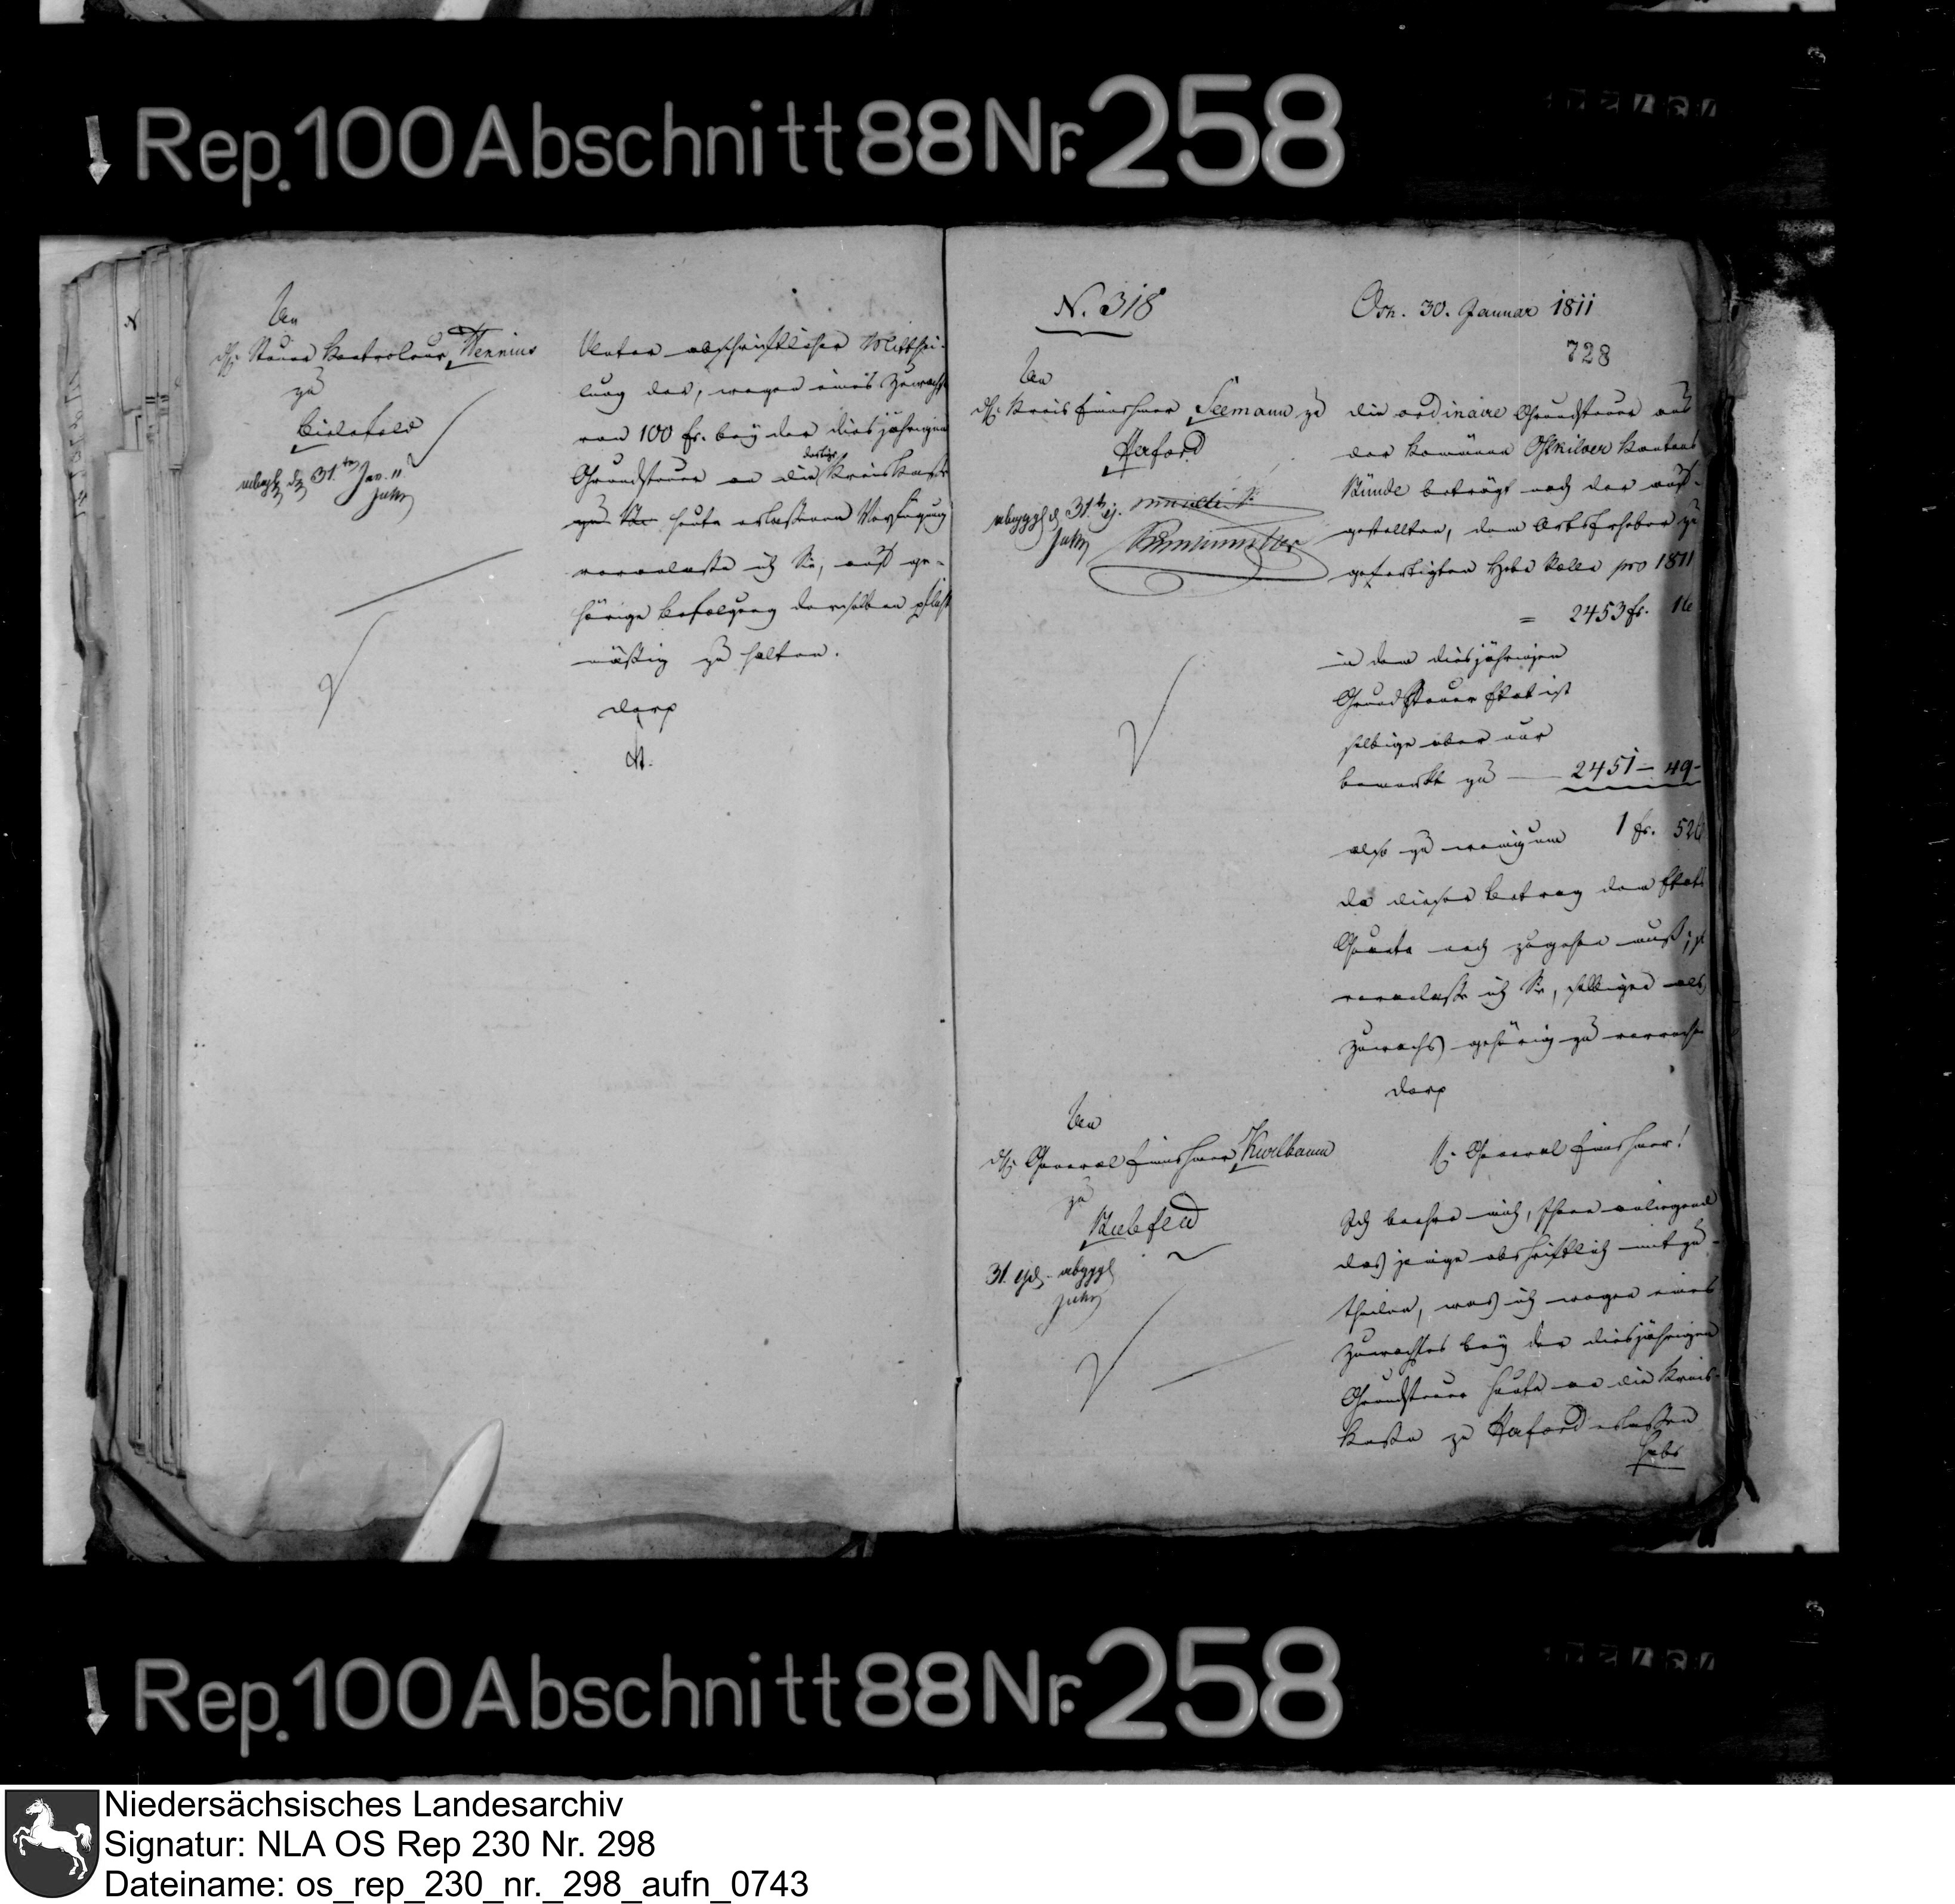 Rep. 100 Abschnitt 88 Nr. 258
An
H. Steuer Controleur Wennius
zu
Bielefeld
abgg. d. 31ten Jan. 11
Unter abschriftlicher Mitthei-
lung der, wegen eines Zuwachs
von 100 fr. bey der diesjährigen
Grundsteuer an die dortige Kreis Kasse
heute erlassenen Verfügung
veranlasse ich Sie, auf ge-
hörige Befolgung derselben pflicht
mäßig zu halten.
N. 318
Osn. 30. Januar 1811
728
An
H. Kreis Einnehmer Seemann zu
Herford
die ordinaire Grundsteuer aus
der Commüne Ostkilver Cantons
Bünde beträgt nach der auf-
gestellten, dem Ortserheber zu
gefertigten Hebe Rolle pro 1811
= 2453 fr. 1 c
in dem diesjährigen
Grundsteuer Etat ist
selbige aber nur
bemerkt zu — 2451 — 49 -
also zu wenig um 1 fr. 52 c
da dieser Betrag dem Etats
Quanto noch zugehen muß; so
veranlasse ich Sie, selbigen als
Zuwachs gehörig zu verrechn
An
H. General Einnehmer Kurlbaum
zu
Bielefeld
31. abggg
H. General Einnehmer!
Ich beehre mich, Ihnen anliegend
dasjenige abschriftlich mitzu-
theilen, was ich wegen eines
Zuwachses bey der diesjährigen
Grundsteuer heute an die Kreis-
Kasse zu Herford erlassen
habe
Rep. 100 Abschnitt 88 Nr. 258
Niedersächsisches Landesarchiv
Signatur: NLA OS Rep 230 Nr. 298
Dateiname: os_rep_230_nr._298_aufn_0743